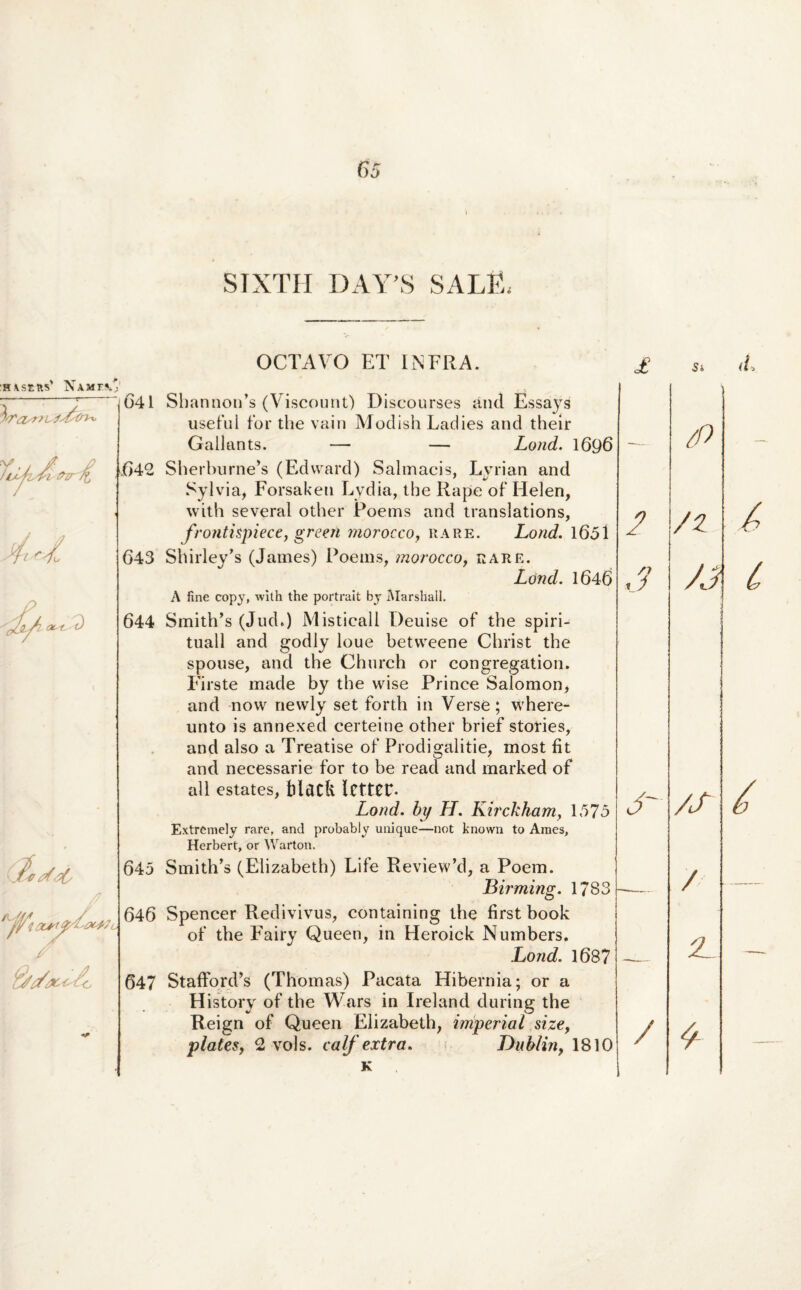 65
SIXTH DAY'S SALE.
OCTAVO ET INFRA.
£ s. d.
HASERS' NAMES.
641 Shannon's (Viscount) Discourses and Essays
useful for the vain Modish Ladies and their
Gallants. — — Lond. 1696
642 Sherburne's (Edward) Salmacis, Lyrian and
Sylvia, Forsaken Lydia, the Rape of Helen,
with several other Poems and translations,
frontispiece, green morocco, RARE. Lond. 1651
2 12 6
643 Shirley's (James) Poems, morocco, RARE.
Lond. 1646
3 13 6
A fine copy, with the portrait by Marshall.
644 Smith's (Jud.) Misticall Deuise of the spiri-
tuall and godly loue betweene Christ the
spouse, and the Church or congregation.
Firste made by the wise Prince Salomon,
and now newly set forth in Verse; where-
unto is annexed certeine other brief stories,
and also a Treatise of Prodigalitie, most fit
and necessarie for to be read and marked of
all estates, black letter.
Lond. by H. Kirckham, 1575
5 15 6
Extremely rare, and probably unique—not known to Ames,
Herbert, or Warton.
645 Smith's (Elizabeth) Life Review'd, a Poem.
Birming. 1783
— 1 —
646 Spencer Redivivus, containing the first book
of the Fairy Queen, in Heroick Numbers.
Lond. 1687
— 2 —
647 Stafford's (Thomas) Pacata Hibernia; or a
History of the Wars in Ireland during the
Reign of Queen Elizabeth, imperial size,
plates, 2 vols. calf extra. Dublin, 1810
1 4 —
K